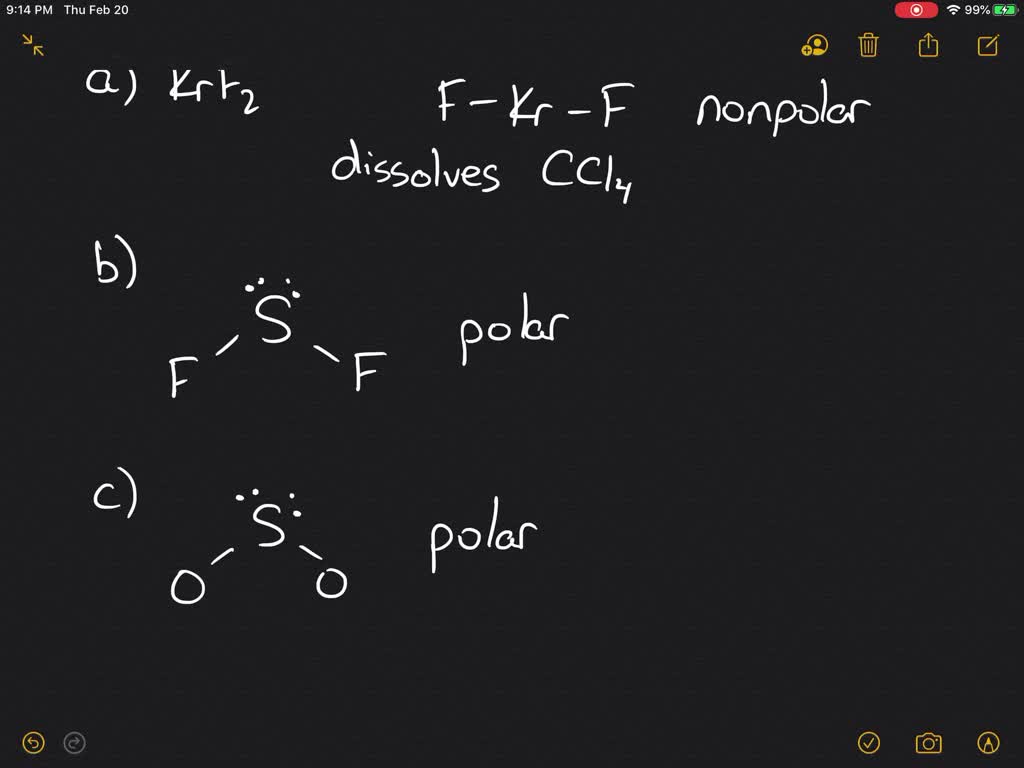 9:14 PM Thu Feb 20 99%
a) KrF2 F-Kr-F nonpolar
dissolves CCl4
b)
S
F F polar
c)
S
O O polar